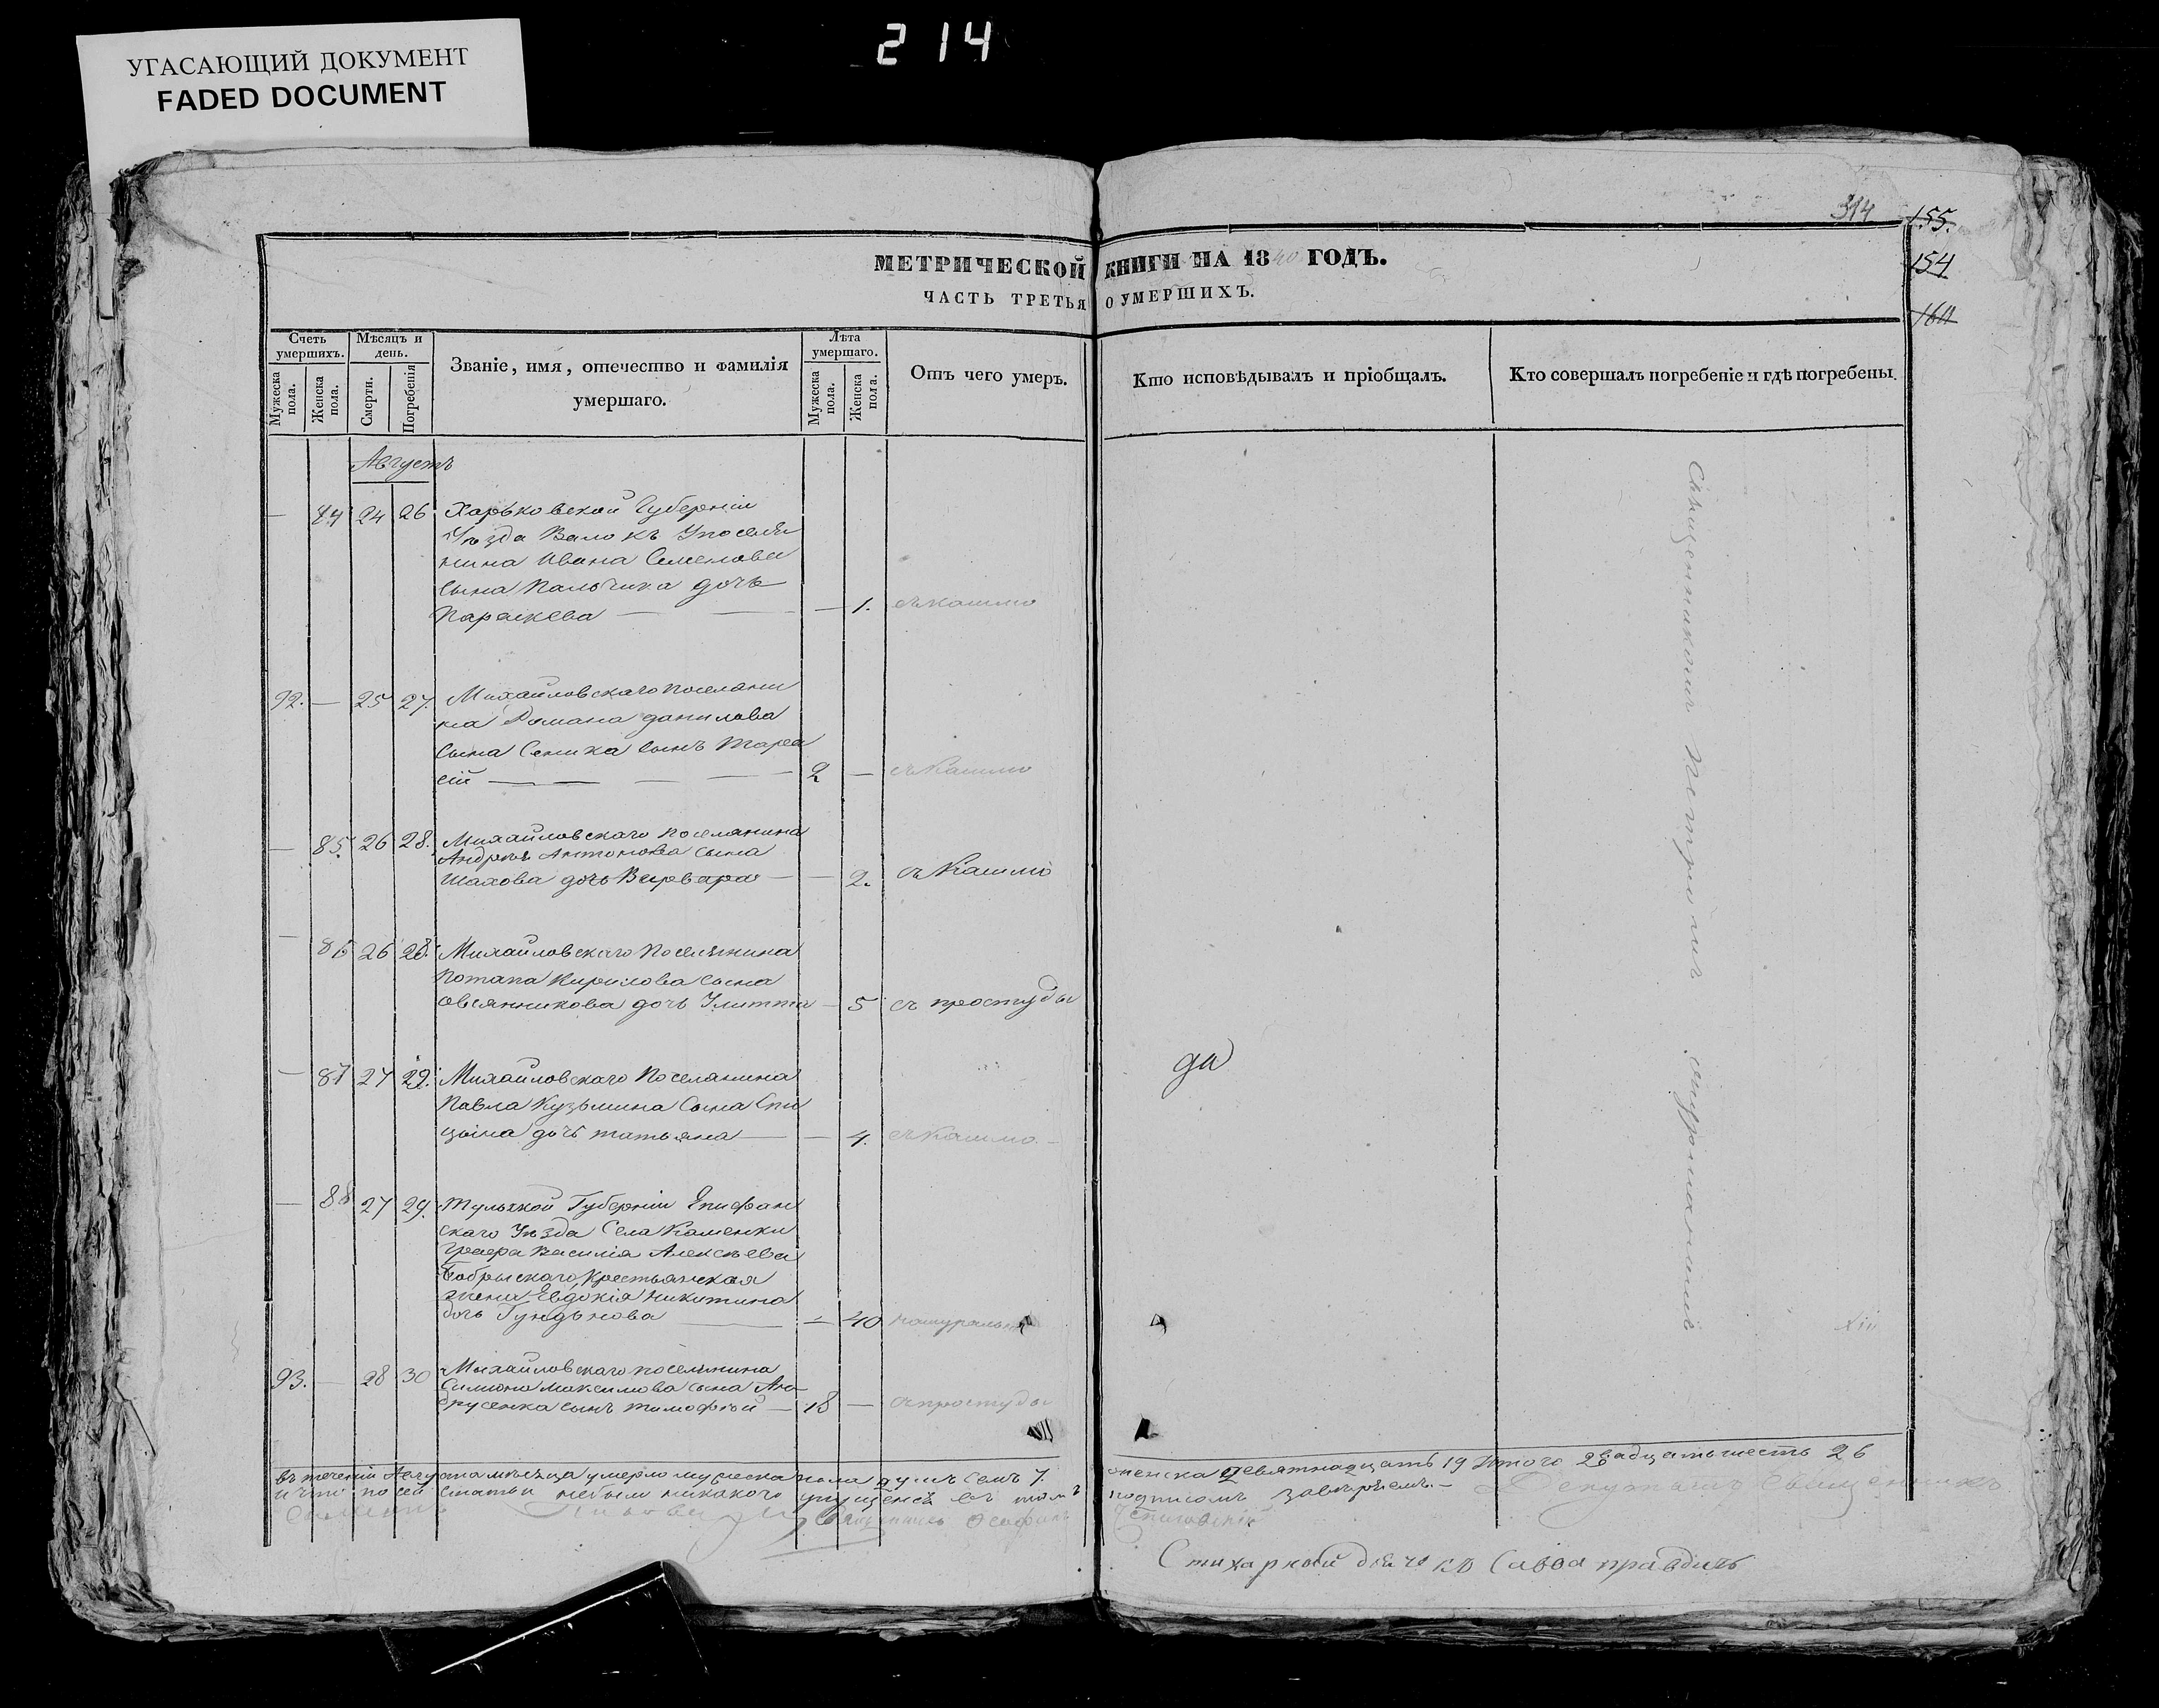 214
УГАСАЮЩИЙ ДОКУМЕНТ
FADED DOCUMENT
314
155.
154
164
МЕТРИЧЕСКОЙ КНИГИ НА 1840 ГОДЪ.
ЧАСТЬ ТРЕТЬЯ О УМЕРШИХЪ.
Счетъ умершихъ.
Мужеска пола.
Женска пола.
Мѣсяцъ и день.
Смерти.
Погребенія
Званіе, имя, отечество и фамилія умершаго.
Лѣта умершаго.
Мужеска пола.
Женска пола.
Отъ чего умеръ.
Кто исповѣдывалъ и пріобщалъ.
Кто совершалъ погребеніе и гдѣ погребены.
Августъ
— 84 24 26 Харьковской Губерніи
Уѣзда Валокъ
нина Ивана Семенова
сына Пальчика дочь
Параскева — — — 1. съ кашлю
92. — 25 27. Михайловскаго поселяни
на Романа данилова
сына Сеника сынъ Тара
сій — — — — 2 — съ кашлю
— 85. 26 28. Михайловскаго поселянина
Андрея Антонова сына
Шахова дочь Варвара — — 2. съ Кашлю
— 86 26 28. Михайловскаго Поселянина
Потапа Кирилова сына
Овсянникова дочь Улитта — 5 съ простуды
— 87 27 29. Михайловскаго Поселянина
Павла Кузьмина Сына Спи
цына дочь татьяна — — 4. съ кашлю — да
— 88 27 29. Тульской Губерніи Епифан
скаго Уѣзда Села Каменки
Графа Василія Алексѣева
Бобрыскаго крестьянская
жена Евдокія Никитина
дочь Гундѣнова — — 40 натурально
93. — 28 30 Михайловскаго поселянина
Симіона Максимова сына Ан-
друсенка сынъ тимофѣй — 18 — съ простуды
Священникомъ Петромъ
въ теченіи Августа мѣсяца умерло мужеска пола душъ семь 7. женска девятнадцать 19 Итого двадцать шесть 26
и что по сей статьи небыло никакого упущенія въ томъ подписомъ завѣряемъ. —
Священникъ
Стихарной дьячокъ Савва правдинъ